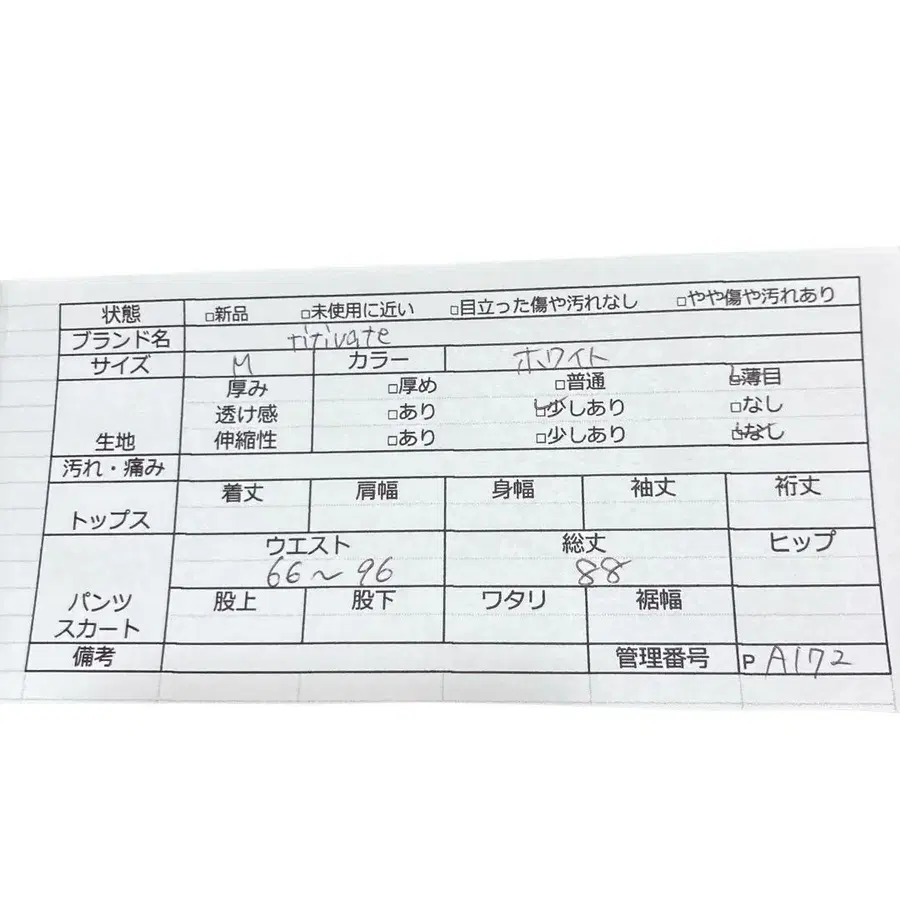 状態 □新品 □未使用に近い □目立った傷や汚れなし □やや傷や汚れあり
ブランド名 titivate
サイズ M カラー ホワイト
生地 厚み □厚め □普通 □薄目
透け感 □あり □少しあり □なし
伸縮性 □あり □少しあり □なし
汚れ・痛み
トップス 着丈 肩幅 身幅 袖丈 裄丈
パンツ スカート ウエスト 総丈 ヒップ
66～96 88
股上 股下 ワタリ 裾幅
備考 管理番号 P A172